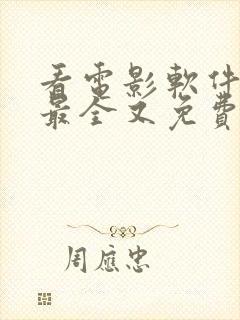 看電影軟件
最全又免費
周應忠